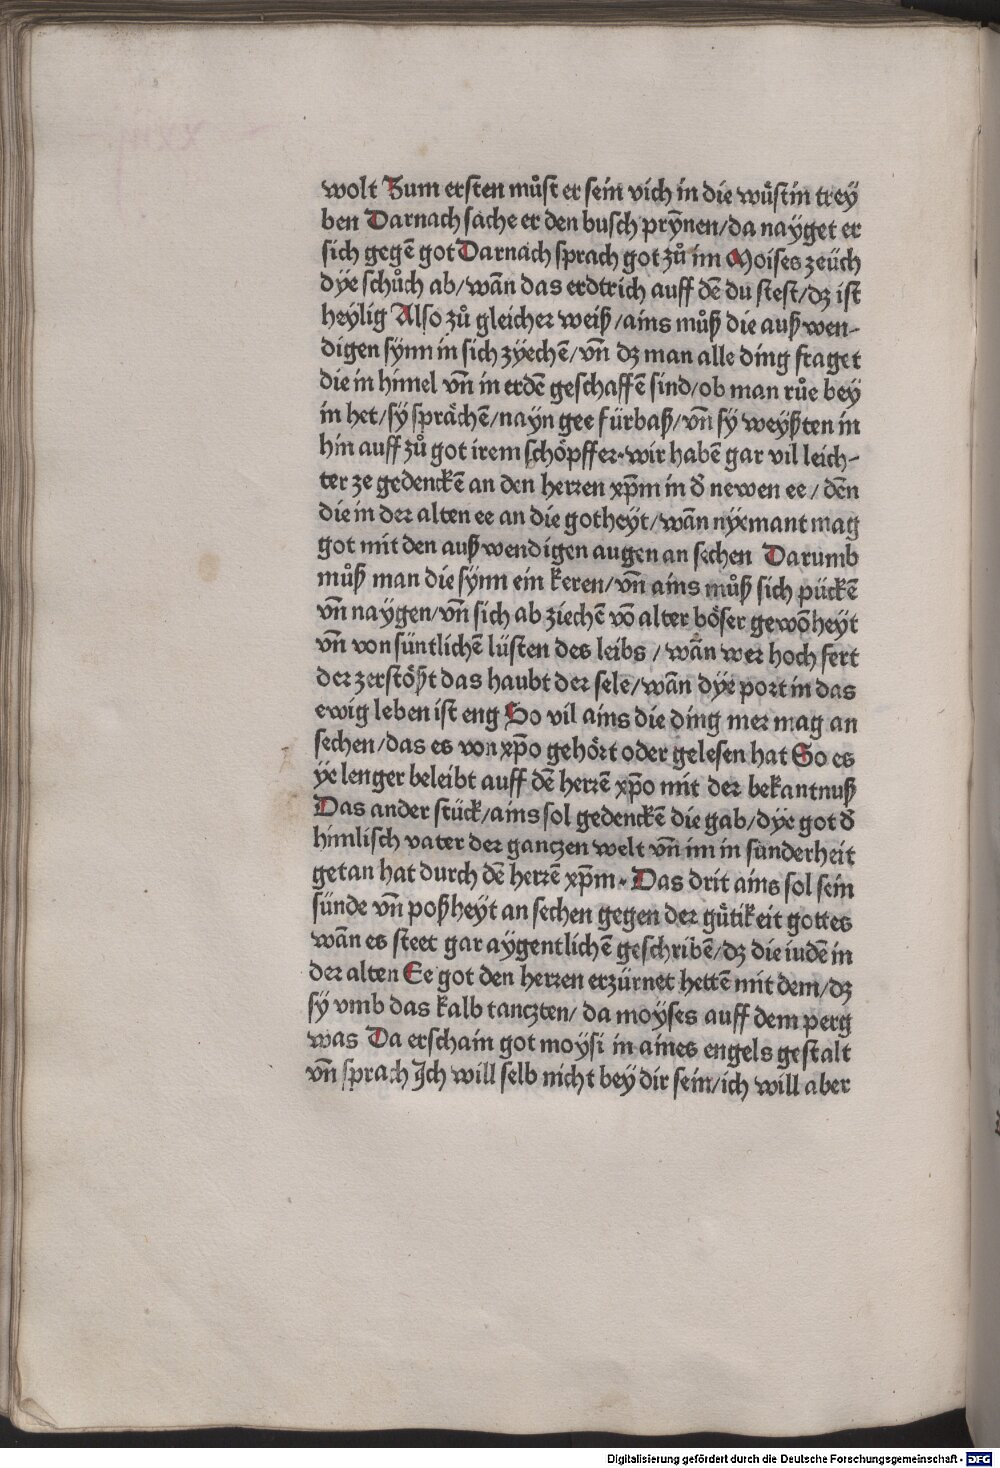 wolt Zum ersten můst er sein vich in die wůstin trey
ben Darnach sache er den busch prÿnen/da nayget er
sich gegē got Darnach sprach got zů im Moises zeüch
dÿe schůch ab/wān das erdtrich auff dē du stest/dz ist
heÿlig Also zů gleicher weiß/ains můß die auß wen-
digen sÿnn in sich zÿechē/vn̄ dz man alle ding fraget
die in himel vn̄ in erdē geschaffē sind/ob man růe bey
in het/sÿ sprächē/nayn gee fürbaß/vn̄ sÿ weyßten in
hin auff zů got irem schöpffer·wir habē gar vil leich-
ter ze gedenckē an den herren xp̄m in d̄ newen ee/dēn
die in der alten ee an die gotheyt/wān nyemant mag
got mit den auß wendigen augen an sechen Darumb
můß man die sÿnn ein keren/vn̄ ains můß sich pückē
vn̄ naÿgen/vn̄ sich ab ziechē vō alter böser gewōheyt
vn̄ von süntlichē lüsten des leibs/wān wer hoch fert
der zerstößt das haubt der sele/wān dÿe port in das
ewig leben ist eng So vil ains die ding mer mag an
sechen/das es von xp̄o gehört oder gelesen hat So es
ÿe lenger beleibt auff dē herrē xp̄o mit der bekantnuß
Das ander stück/ains sol gedenckē die gab/dÿe got d̄
himlisch vater der ganczen welt vn̄ im in sunderheit
getan hat durch dē herrē xp̄m·Das drit ains sol sein
sünde vn̄ poßheÿt an sechen gegen der gůtikeit gottes
wān es steet gar aÿgentlichē geschribē/dz die iudē in
der alten Ee got den herren erzürnet hettē mit dem/dz
sÿ vmb das kalb tanczten/da moÿses auff dem perg
was Da erschain got moÿsi in aines engels gestalt
vn̄ sprach Ich will selb nicht bey dir sein/ich will aber
Digitalisierung gefördert durch die Deutsche Forschungsgemeinschaft - DFG